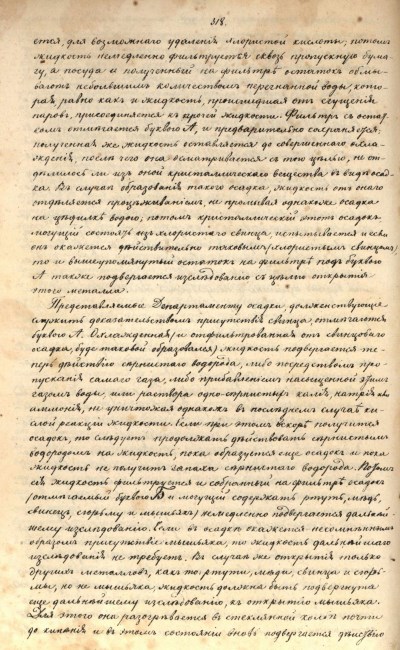 318.
ется, для возможнаго удаленія хлористой кислоты; потомъ
жидкость немедленно фильтруется сквозь пропускную бума-
гу, а посуда и полученный на фильтрѣ остатокъ обмы-
ваютъ небольшимъ количествомъ перегнанной воды, кото-
рая, равно какъ и жидкость, происшедшая отъ сгущенія
паровъ, присоединяется къ прочей жидкости. Фильтръ съ остат-
комъ отмѣчается буквою А, и предварительно сохраняется;
полученная же жидкость оставляется до совершеннаго охла-
жденія, послѣ чего она осматривается съ тою цѣлью, не от-
дѣлилось ли изъ оной кристаллическаго вещества въ видѣ осад-
ка. Въ случаѣ образованія такого осадка, жидкость отъ онаго
отдѣляется процѣживаніемъ, не промывая однакоже осадка
на цѣдилкѣ водою; потомъ кристаллическій этотъ осадокъ,
могущій состоять изъ хлористаго свинца, испытывается и если
онъ окажется дѣйствительно таковымъ (хлористымъ свинцомъ),
то и вышеупомянутый остатокъ на фильтрѣ подъ буквою
А также подвергается изслѣдованію съ цѣлью открытія
этого металла.
Представляемые Департаменту осадки, долженствующіе
служить доказательствомъ присутствія свинца, отмѣчаются
буквою А. Охлажденная и отфильтрованная отъ свинцоваго
осадка, буде таковой образовался, жидкость подвергается те-
перь дѣйствію сѣрнистаго водорода, либо посредствомъ про-
пусканія самаго газа, либо прибавленіемъ насыщенной этимъ
газомъ воды, или раствора одно-сѣрнистыхъ калія, натрія или
аммонія, не уничтожая однакожъ въ послѣднемъ случаѣ ки-
слой реакціи жидкости. Если при этомъ вскорѣ получится
осадокъ, то слѣдуетъ продолжать дѣйствовать сѣрнистымъ
водородомъ на жидкость, пока образуется еще осадокъ и пока
жидкость не получитъ запаха сѣрнистаго водорода. Потомъ
сія жидкость фильтруется и собранный на фильтрѣ осадокъ
(отмѣчаемый буквою Б и могущій содержать ртуть, мѣдь,
свинецъ, сюрьму и мышьякъ) немедленно подвергается дальнѣй-
шему изслѣдованію. Если въ осадкѣ окажется несомнѣннымъ
образомъ присутствіе мышьяка, то жидкость дальнѣйшаго
изслѣдованія не требуетъ. Въ случаѣ же открытія только
другихъ металловъ, какъ то ртути, мѣди, свинца и сюрь-
мы, но не мышьяка, жидкость должна быть подвергнута
еще дальнѣйшему изслѣдованію, къ открытію мышьяка.
Для этого она разогрѣвается въ стеклянной колбѣ почти
до кипѣнія и въ этомъ состояніи вновь подвергается дѣйствію